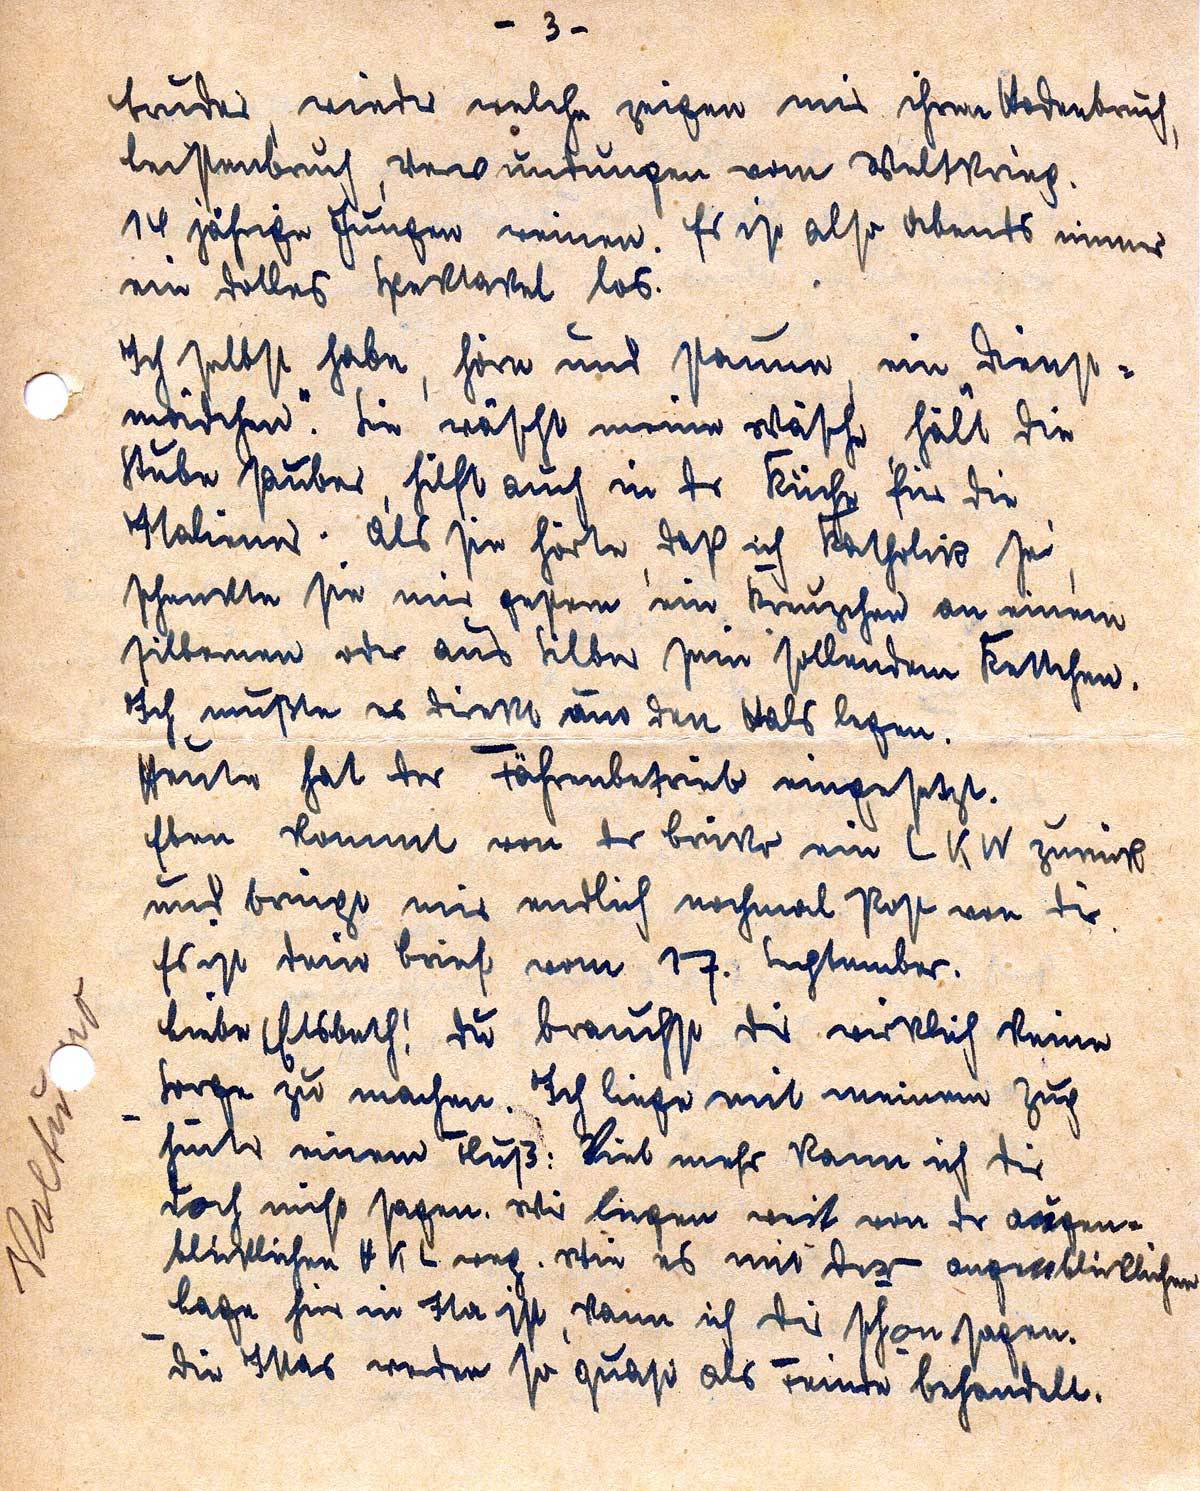 - 3 -
bruder, wieder welche zeigen mir ihren Hodenbruch,
Leistenbruch, Verwundungen vom Weltkrieg.
14 jährige Jungen weinen. Es ist also Abends immer
ein dolles Spektakel los.
Ich selbst habe, höre und staune, ein „Dienst-
mädchen". Sie wäscht meine Wäsche, hält die
Stube sauber, hilft auch in der Küche für die
Italiener. Als sie hörte, daß ich Katholik sei,
schenkte sie mir gestern ein Kreuzchen an einem
silbernen oder aus Silber sein sollendem Kettchen.
Ich mußte es direkt um den Hals legen.
Heute hat der Fährenbetrieb eingesetzt.
Eben kommt von der Brücke ein LKW zurück
und bringt mir endlich nochmal Post von dir.
Es ist dein Brief vom 17. September.
Liebe Elsbeth! Du brauchst dir wirklich keine
Sorge zu machen. Ich liege mit meinem Zug
hinter einem Fluß: Viel mehr kann ich dir
doch nicht sagen. Wir liegen weit von der augen-
blicklichen HKL weg. Wie es mit der augenblicklichen
Lage hier in Ita ist, kann ich dir schon sagen.
Die Itas werden so quasi als Feinde behandelt.
Volturno